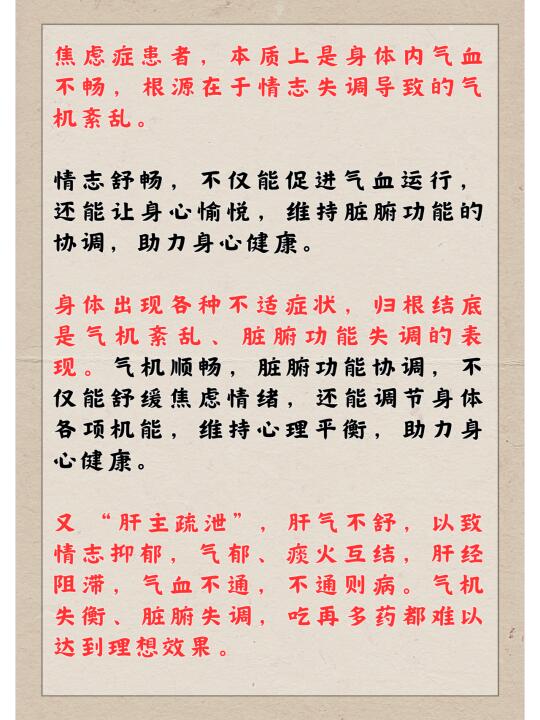 焦虑症患者，本质上是身体内气血
不畅，根源在于情志失调导致的气
机紊乱。
情志舒畅，不仅能促进气血运行，
还能让身心愉悦，维持脏腑功能的
协调，助力身心健康。
身体出现各种不适症状，归根结底
是气机紊乱、脏腑功能失调的表
现。气机顺畅，脏腑功能协调，不
仅能舒缓焦虑情绪，还能调节身体
各项机能，维持心理平衡，助力身
心健康。
又“肝主疏泄”，肝气不舒，以致
情志抑郁，气郁、痰火互结，肝经
阻滞，气血不通，不通则病。气机
失衡、脏腑失调，吃再多药都难以
达到理想效果。